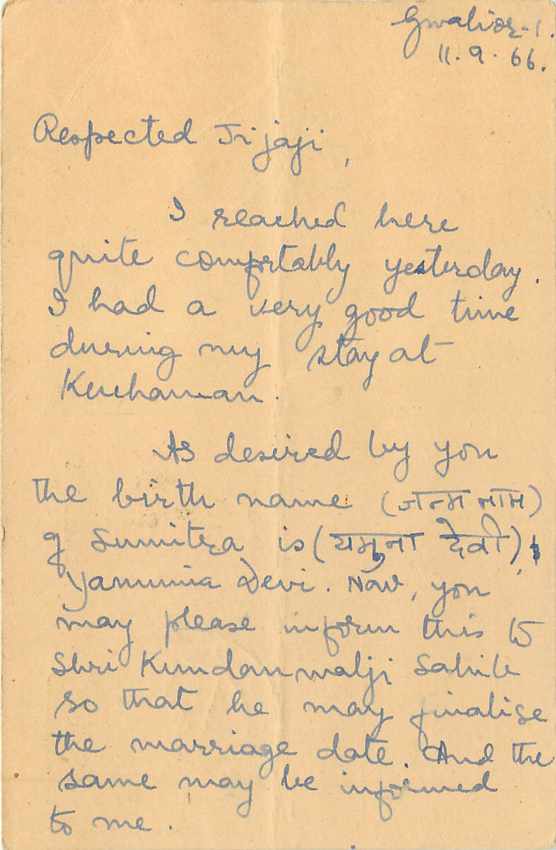 Gwalior-1.
11.9.66.
Respected Jijaji,
I reached here
quite comfortably yesterday.
I had a very good time
during my stay at
Kuchaman.
As desired by you
the birth name (जन्म नाम)
of Sumitra is (यमुना देवी),
Yamuna Devi. Now, you
may please inform this to
Shri Kundanmalji Sahib
so that he may finalise
the marriage date. And the
same may be informed
to me.